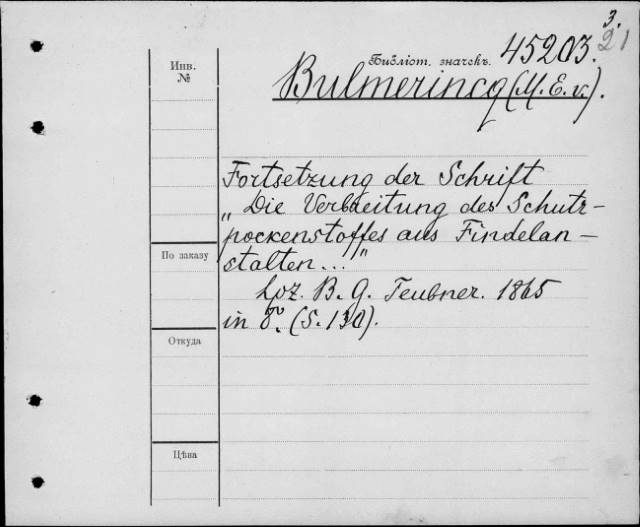 3.
21
Библіот. значекъ. 45203.
Инв.
№
Bulmerincq (M. E. v.).
Fortsetzung der Schrift
„Die Verbreitung des Schutz-
pockenstoffes aus Findelan-
stalten..."
По заказу
Lpz. B. G. Teubner. 1865
in 8º. (S. 130).
Откуда
Цѣна